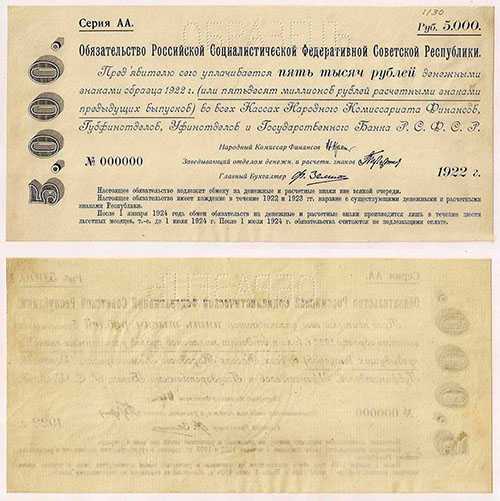 1/30
Серия АА.
ОБРАЗЕЦЪ
Руб. 5.000.
Обязательство Российской Социалистической Федеративной Советской Республики.
Пред'явителю сего уплачивается пять тысяч рублей денежными
знаками образца 1922 г. (или пятьдесят миллионов рублей расчетными знаками
предыдущих выпусков) во всех Кассах Народного Комиссариата Финансов,
Губфинотделов, Уфинотделов и Государственного Банка Р. С. Ф. С. Р.
5.000.
Народный Комиссар Финансов
№ 000000
Заведывающий отделом денежн. и расчетн. знаков
1922 г.
Главный Бухгалтер
Настоящее обязательство подлежит обмену на денежные и расчетные знаки вне всякой очереди.
Настоящее обязательство имеет хождение в течение 1922 и 1923 гг. наравне с существующими денежными и расчетными
знаками Республики.
После 1 января 1924 года обмен обязательств на денежные и расчетные знаки производится лишь в течение шести
льготных месяцев, т.-е. до 1 июля 1924 г. После 1 июля 1924 г. обязательства считаются не подлежащими оплате.